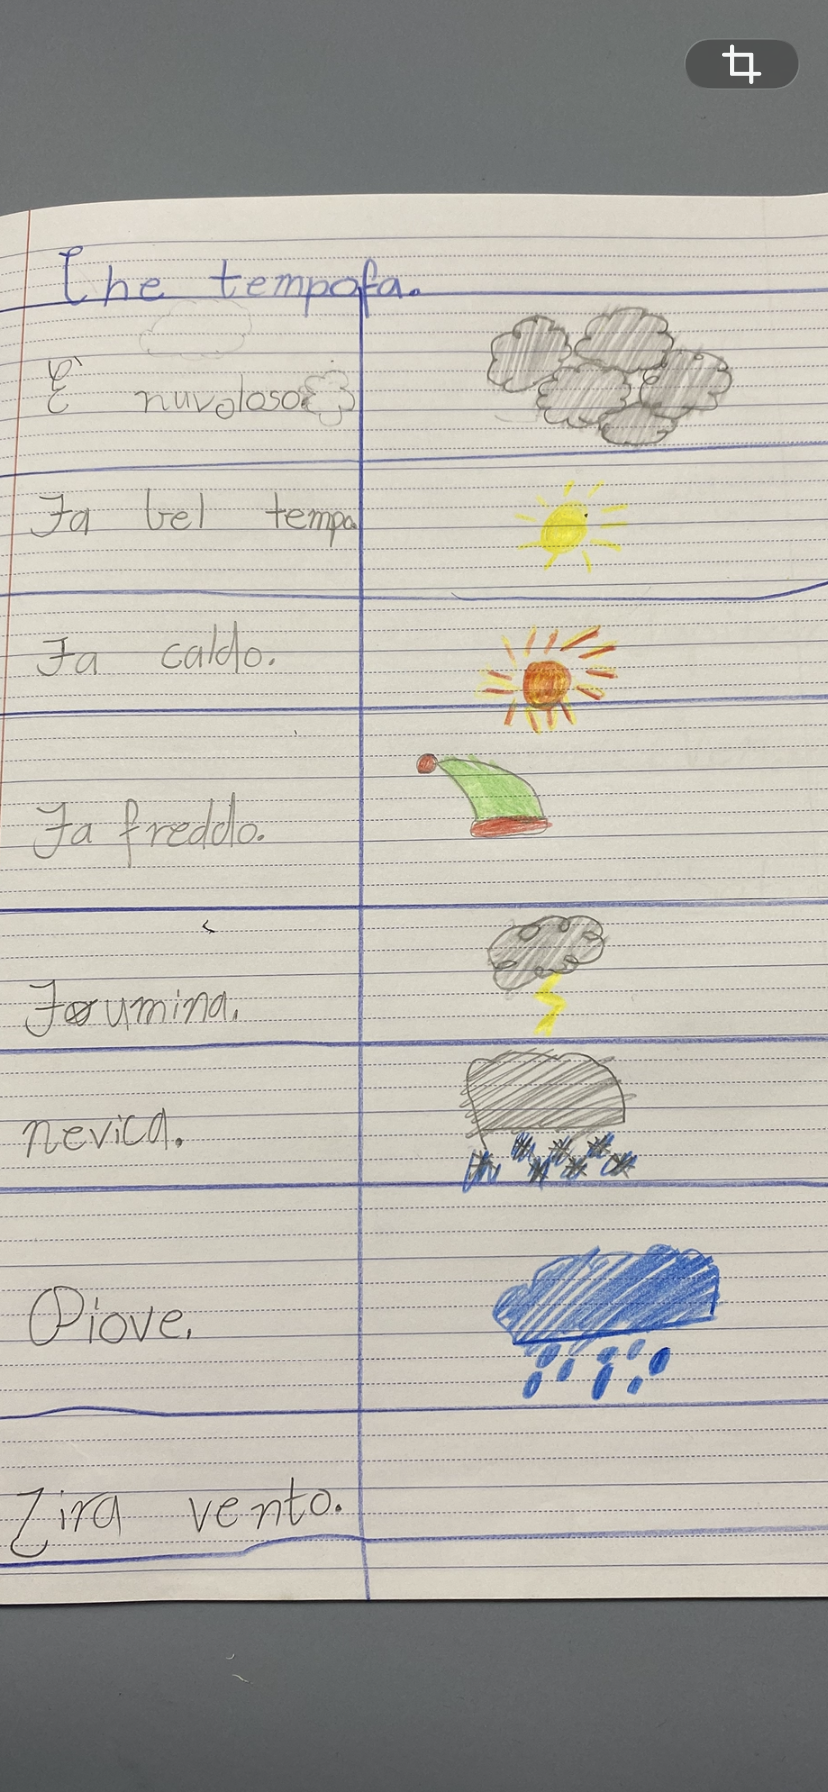 Che tempofa.
È nuvoloso.
Fa bel tempo
Fa caldo.
Fa freddo.
Foumina.
nevica.
Piove.
Tira vento.